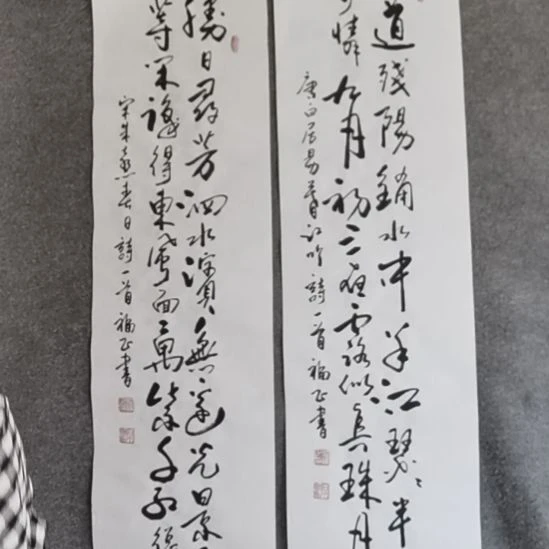 道殘陽鋪水中半江瑟瑟半
憐九月初三夜露似真珠月
唐白居易暮江吟詩一首福正書
勝日尋芳泗水濱無邊光景
等閒識得東風面萬紫千紅總
宋朱熹春日詩一首福正書